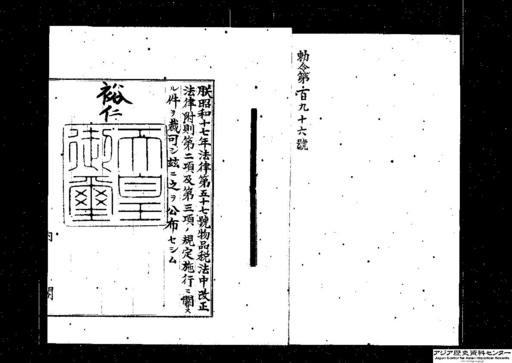 勅令第百九十六號
朕昭和十七年法律第五十七號物品税法中改正
法律附則第二項及第三項ノ規定施行ニ關ス
ル件ヲ裁可シ玆ニ之ヲ公布セシム
裕仁
天皇
御璽
内閣
アジア歴史資料センター
Japan Center for Asian Historical Records